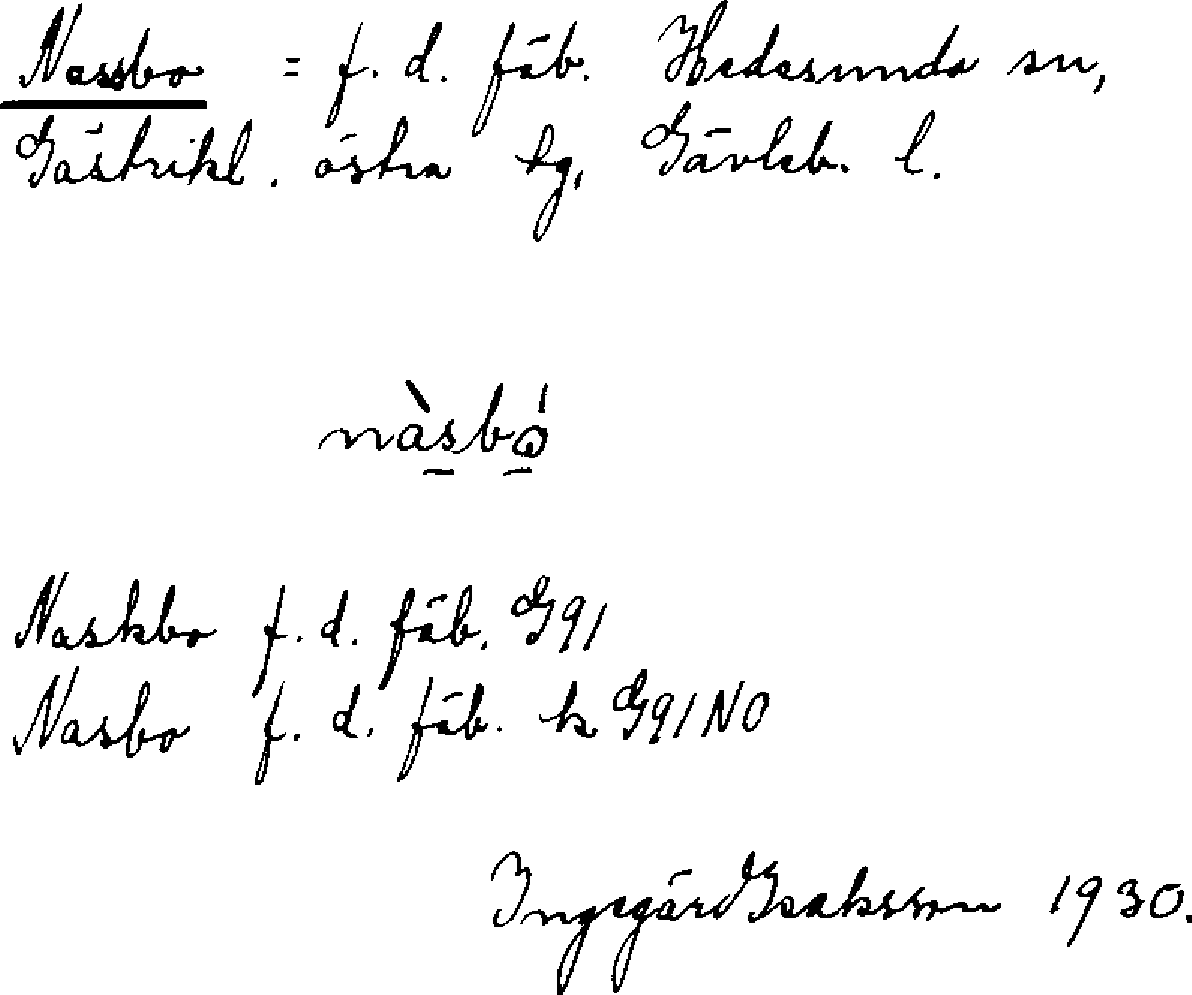 Nassbo = f. d. fäb. Hedesunda sn,
Gästrikl. östra tg, Gävleb. l.
nàsbó̤
Naskbo f. d. fäb. G91
Nasbo f. d. fäb. k G91NO
Ingegärd Isaksson 1930.